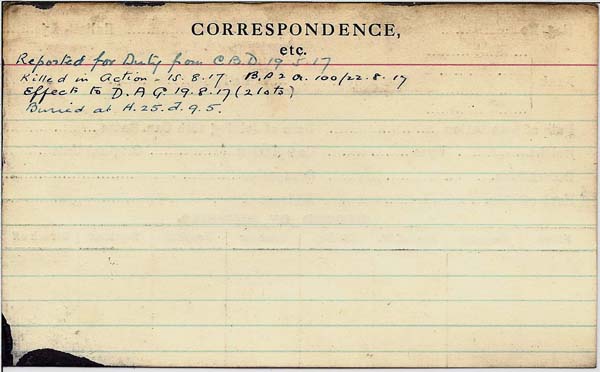 CORRESPONDENCE,
etc.
Reported for Duty from C.B.D. 19.5.17
Killed in Action - 15.8.17. B.P2 a. 100/22.8.17
Effects to D.A.G. 19.8.17 (2 lots)
Buried at H.25.d.9.5.